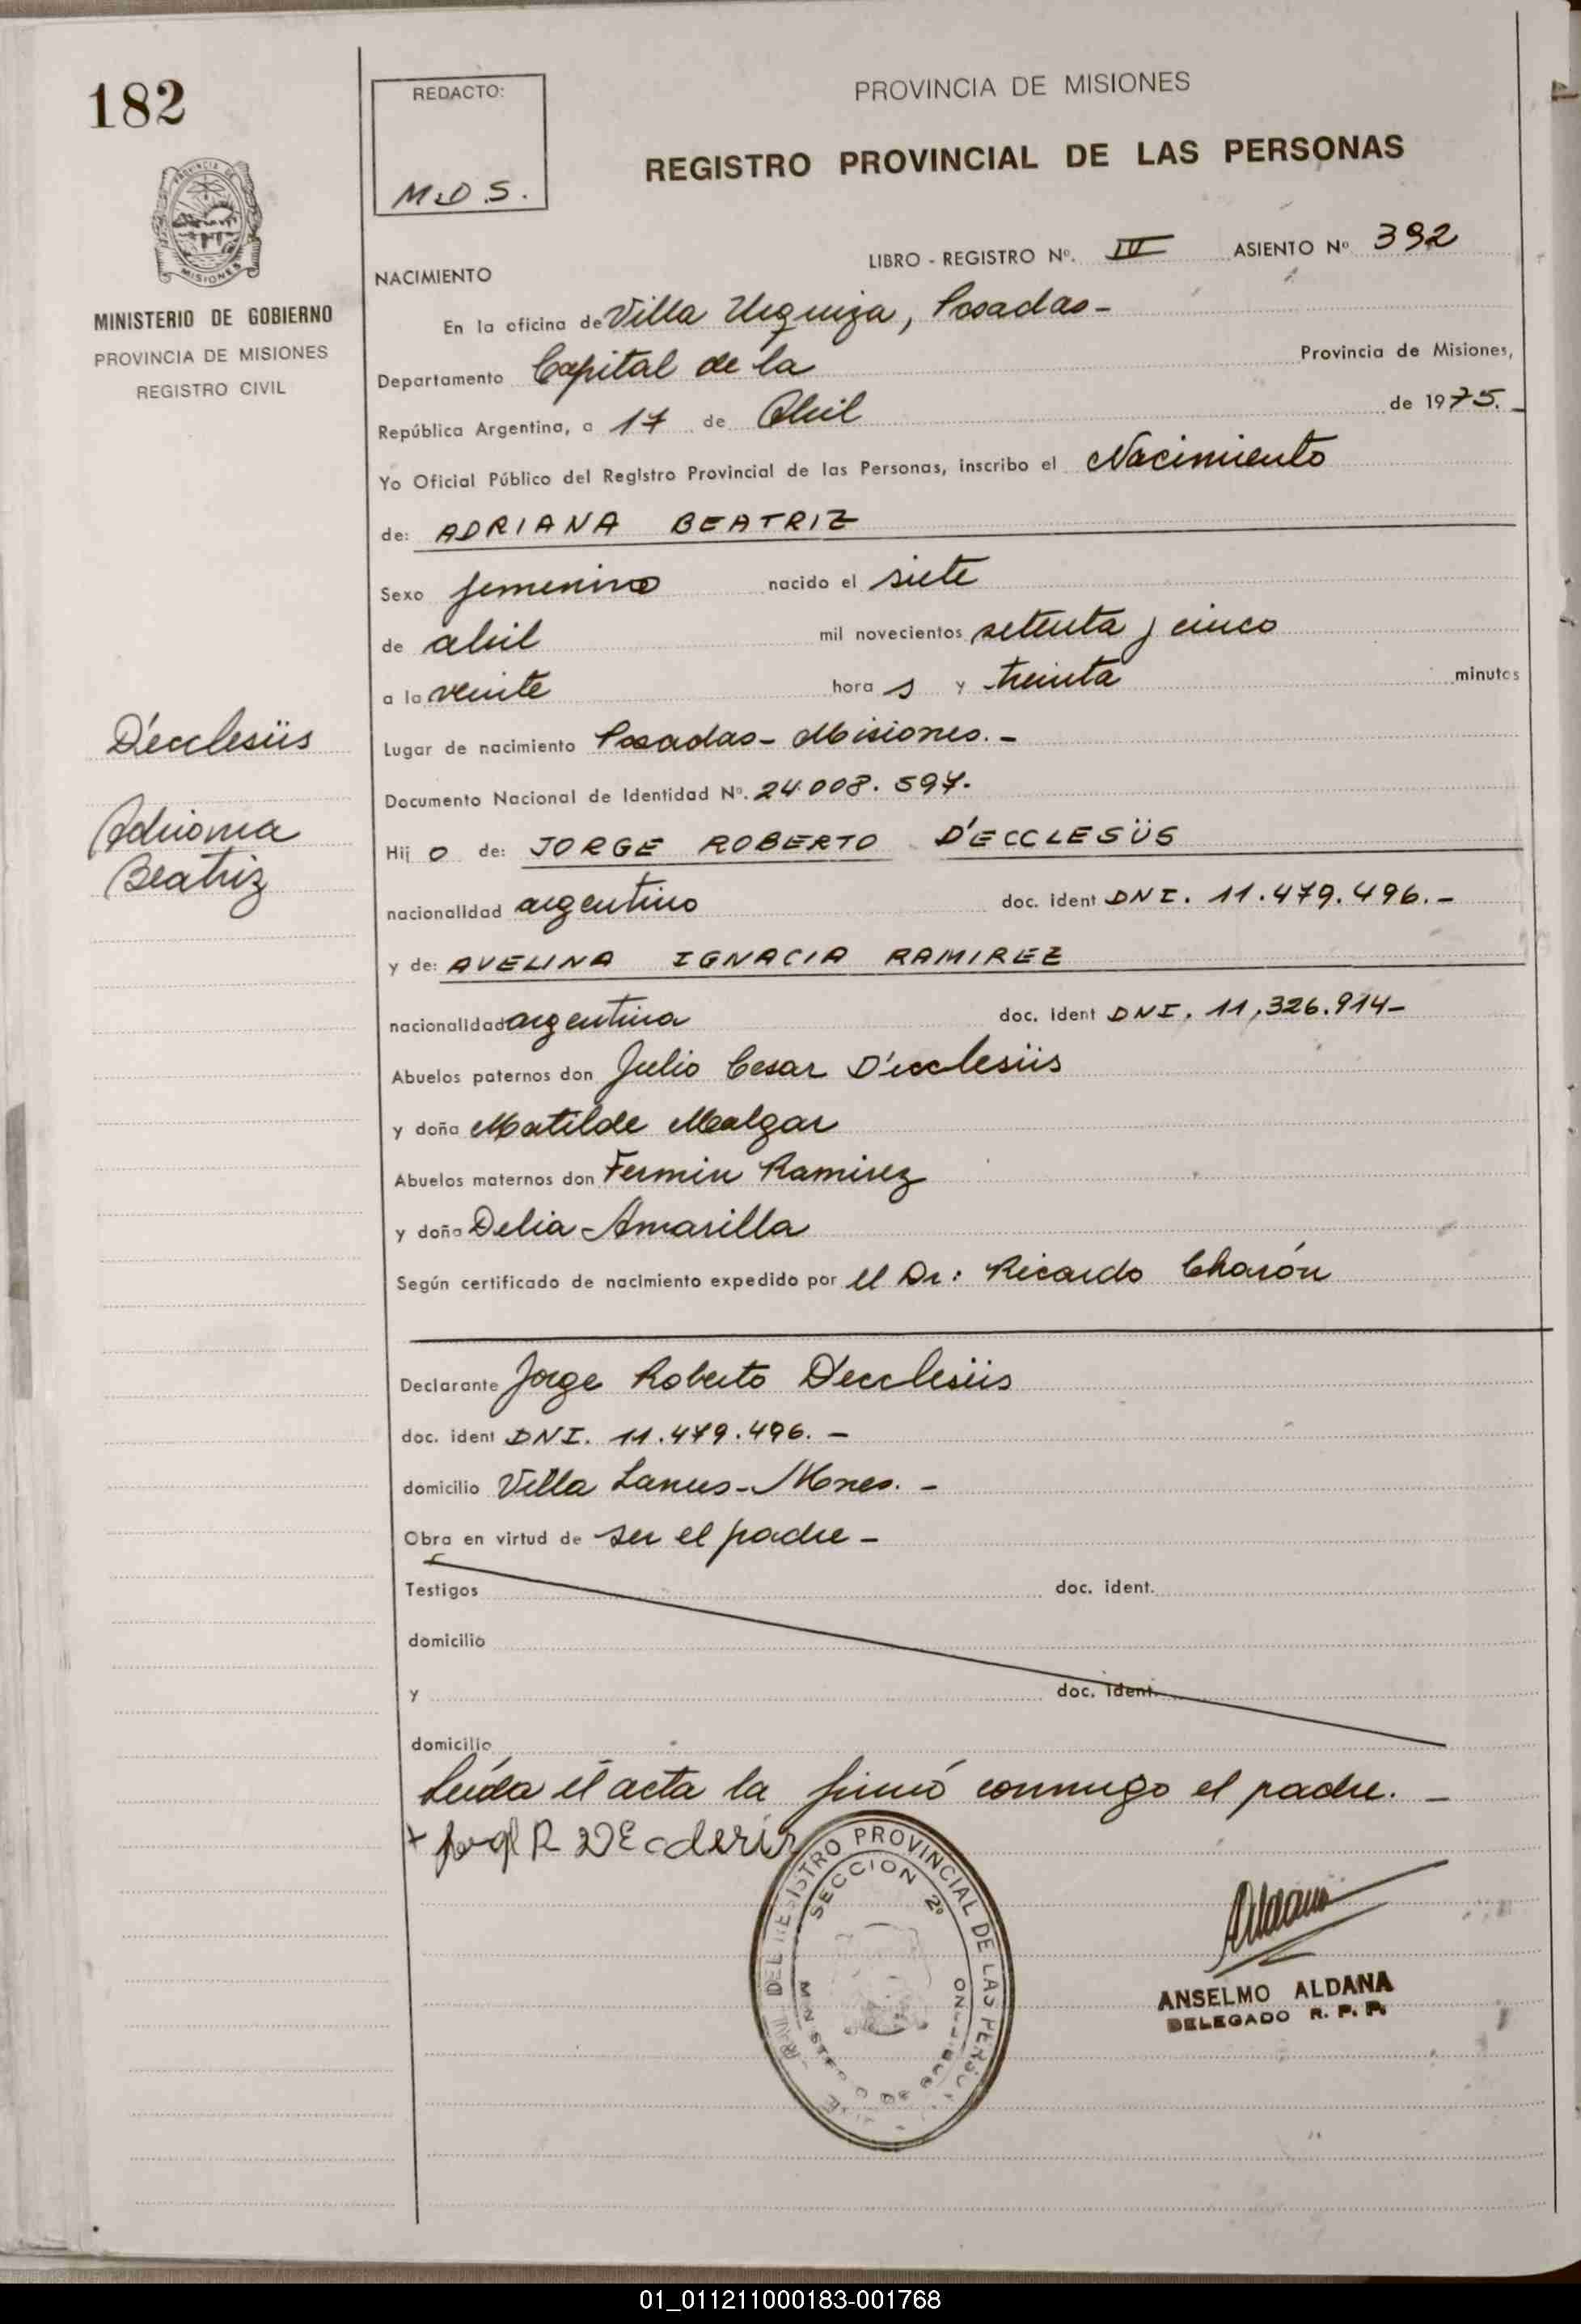 182
REDACTO:
M.D.S.
PROVINCIA DE MISIONES
REGISTRO PROVINCIAL DE LAS PERSONAS
PROVINCIA DE
MISIONES
MINISTERIO DE GOBIERNO
PROVINCIA DE MISIONES
REGISTRO CIVIL
LIBRO - REGISTRO Nº. IV ASIENTO Nº 392
NACIMIENTO
En la oficina de Villa Urquiza, Posadas-
Departamento Capital de la Provincia de Misiones,
República Argentina, a 17 de Abril de 1975.-
Yo Oficial Público del Registro Provincial de las Personas, inscribo el Nacimiento
de: ADRIANA BEATRIZ
Sexo femenino nacido el siete
de abril mil novecientos setenta y cinco
a la veinte hora s y treinta minutos
Lugar de nacimiento Posadas- Misiones.-
Documento Nacional de Identidad Nº. 24.008.597.
Hij o de: JORGE ROBERTO D'ECCLESÜS
nacionalidad argentino doc. ident DNI. 11.479.496.-
y de: AVELINA IGNACIA RAMIREZ
nacionalidad argentina doc. ident DNI. 11.326.914-
Abuelos paternos don Julio Cesar D'ecclesüs
y doña Matilde Melgar
Abuelos maternos don Fermin Ramirez
y doña Delia Amarilla
Según certificado de nacimiento expedido por el Dr: Ricardo Charón
D'ecclesüs
Adriana
Beatriz
Declarante Jorge Roberto D'ecclesüs
doc. ident DNI. 11.479.496.-
domicilio Villa Lanus- Mnes.-
Obra en virtud de ser el padre-
Testigos doc. ident.
domicilio
y doc. ident.
domicilio
Leída el acta la firmó conmigo el padre.-
REGISTRO PROVINCIAL DE LAS PERSONAS
SECCION 2º
ANSELMO ALDANA
DELEGADO R. P. P.
01_011211000183-001768